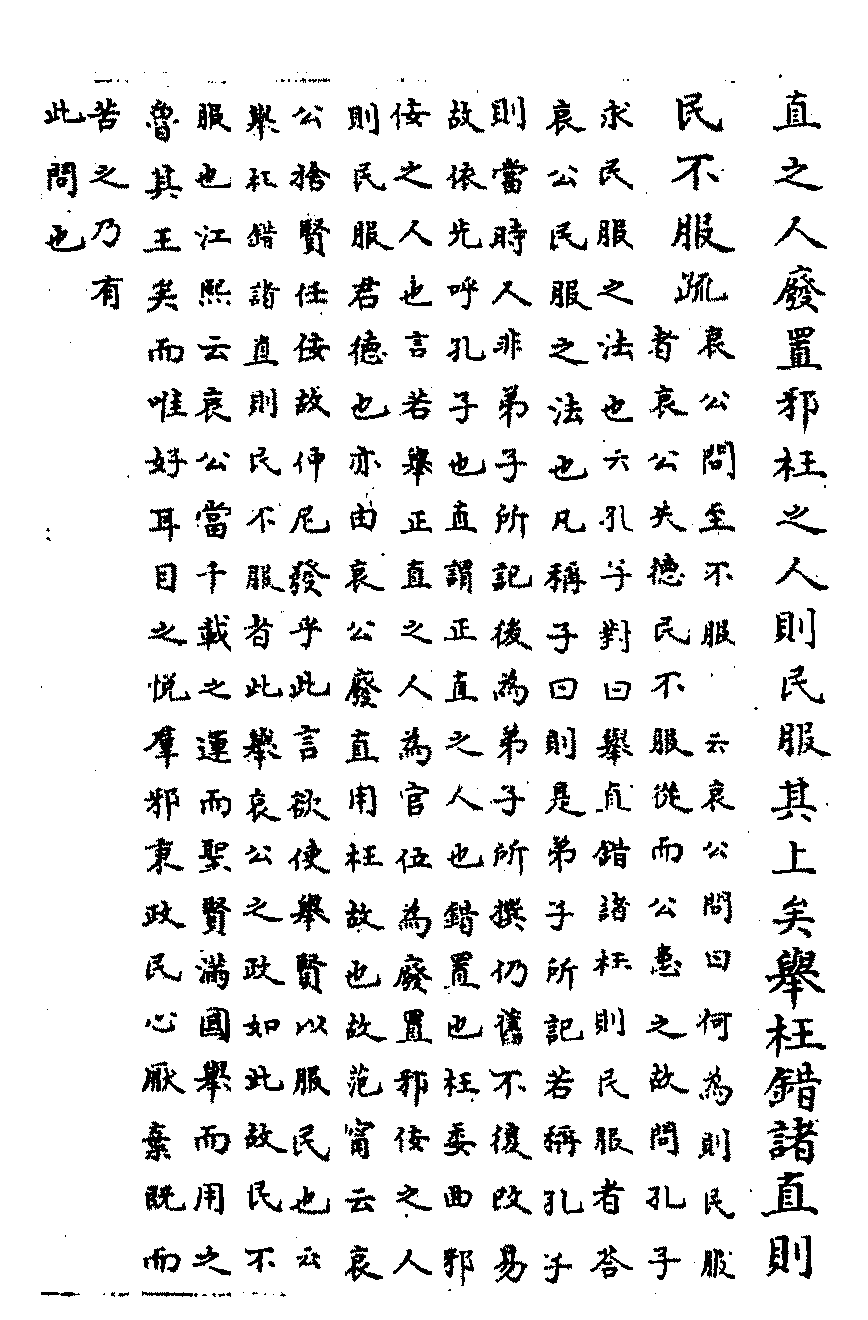 直之人廢置邪枉之人則民服其上矣舉枉錯諸直則
民不服疏
哀公問至不服　云哀公問曰何為則民服
者哀公失德民不服從而公患之故問孔子
求民服之法也云孔子對曰舉直錯諸枉則民服者荅
哀公民服之法也凡稱子曰則是弟子所記若稱孔子
則當時人非弟子所記後為弟子所撰仍舊不復改易
故依先呼孔子也直謂正直之人也錯置也枉委曲邪
佞之人也言若舉正直之人為官位為廢置邪佞之人
則民服君德也亦由哀公廢直用枉故也故范甯云哀
公捨賢任佞故仲尼發乎此言欲使舉賢以服民也云
舉枉錯諸直則民不服者此舉哀公之政如此故民不
服也江熙云哀公當千載之運而聖賢滿國舉而用之
魯其王矣而唯好耳目之悅羣邪秉政民心厭棄既而
苦之乃有
此問也